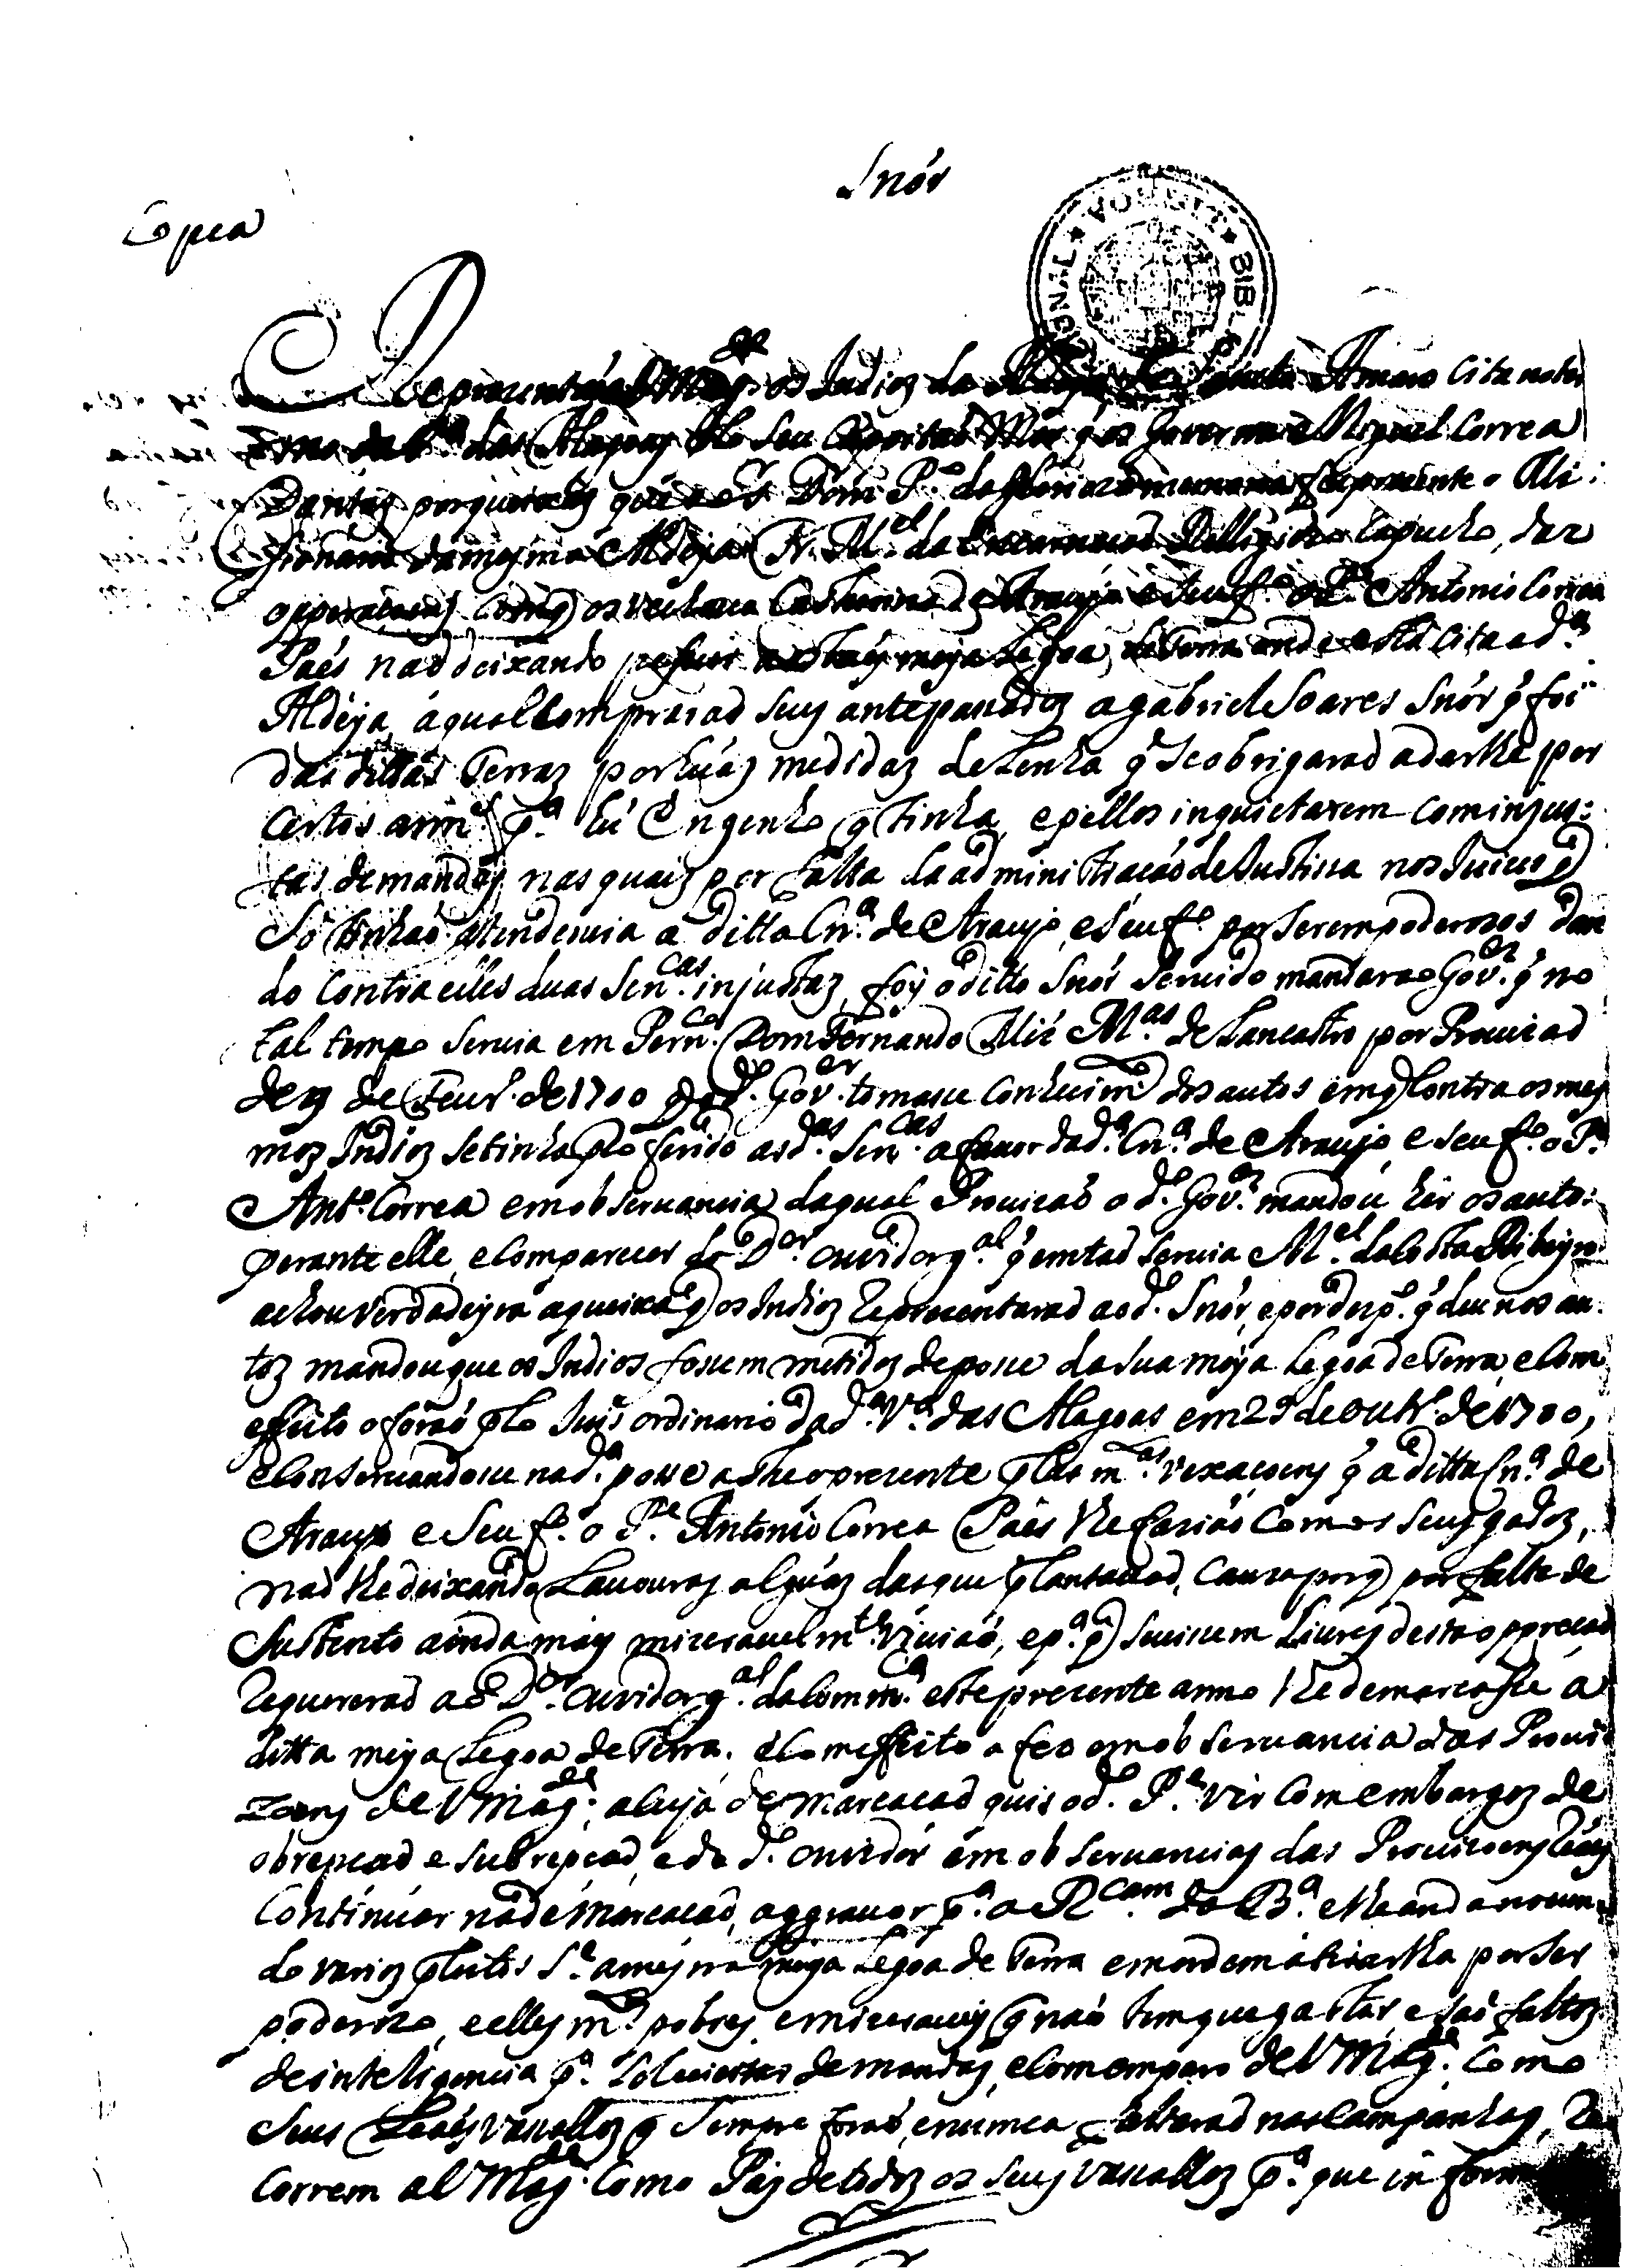 Snõr
Copea
BIB
Reprezentaõ a V Mag.de os Indios da Aldeya de Santo Amaro cita no ter
das Alagoas pello seu Capitaõ Mor q̃ os Governa Miguel Correa
Dantas porquerendo que o Dom P.o da
da mesma Aldeya Fr. M.el da Encarnaçaõ Relligiozo Capucho, das
oppreçoens com q̃ os vechava Catherina de Araujo e seu f.o o P.e Antonio Correa
Paés naõ deixando pesuir meya Legoa, de Terra onde está cita a d.a
Aldeya, a qual Compraraõ seus antepassados a gabriel Soares Snõr q̃ foi
das dittas Terras por huãs medidas de Lenha q̃ se obrigaraõ a dar lhe por
Certos ann.s p.a hũ Engenho q̃ tinha, e pellos inquietarem com injus:
tas demandas nas quais por falta da administraçaõ de Justissa nos Juizes q̃
Só tinhaõ atendencia a ditta Cn.a de Araujo, e seu f.o por Serem poderozos dan
do Contra elles duas Sen.cas injustas, foy o ditto Snõr Servido mandar ao Gov.or q̃ no
tal tempo Servia em Pern.co Dom Fernando Miz Mas.as de Lancastro por Provizaõ
de Feur.o de 1700 q̃ o d.o Gov.or tomase Conhecim.to dos autos em q̃ Contra os mes
mos Indios se tinha proferido as d.as Sen.cas a favor da d.a Cn.a de Araujo, e seu f.o o P.e
Ant.o Correa em observancia da qual Provizaõ o d.o Gov.or mandou hir os autos
perante elle, e Com parecer do D.or ouvidor g.al q̃ entaõ Servia M.el da Costa Ribeyro
achou verdadeyra a queixa q̃ os Indios Reprezentaraõ ao d.o Snõr, e por desp.o q̃ deu nos au-
tos mandou que os Indios fossem metidos de posse da sua meya Legoa de Terra, e Com
effeito o foraõ pello Juis ordinario da d.a V.a das Alagoas em 29 de outr.o de 1700,
e Conservandosse na d.a posse athe o prezente pellas m.tas vexaçoens q̃ a ditta Cn.a de
Araujo e Seu f.o o P.e Antonio Correa Paés lhe faziaõ Com os seus gados,
naõ lhe deixando Lavouras alguãs das que plantavaõ, Cauza porq̃ por falta de
Sustento ainda mais mizeravelm.te viviaõ, e p.a q̃ se vissem Livres desta oppreçaõ
Requereraõ ao D.or ouvidor g.al da Com.ca este prezente anno lhe demarcasse a
ditta meya Legoa de Terra, e Com effeito o fes em observancia das Provi
zoens de V Mag.de; a cuja demarcaçaõ quis o d.o P.e vir Com embargos de
obrepçaõ e subrepçaõ, e do d.o ouvidor em observancias das Provizoens Reaes
Continuar na demarcaçaõ, aggravar p.a a R.cam da B.a e lhe anda moven-
do varios pleitos S.e a mesma meya Legoa de Terra em ordem a tirar lha por ser
poderozo, e elles m.to pobres e mizeraveis q̃ naõ tem que gastar e saõ faltos
de inteligencia p.a Solicitar demandas, e Com emparo de V Mag.de Como
Seus Leaés vassallos q̃ Sempre foraõ, e nunca faltaraõ nas Campanhas, Re
Correm a V Mag.de Como Pay de todos os seus vassallos p.a que informa